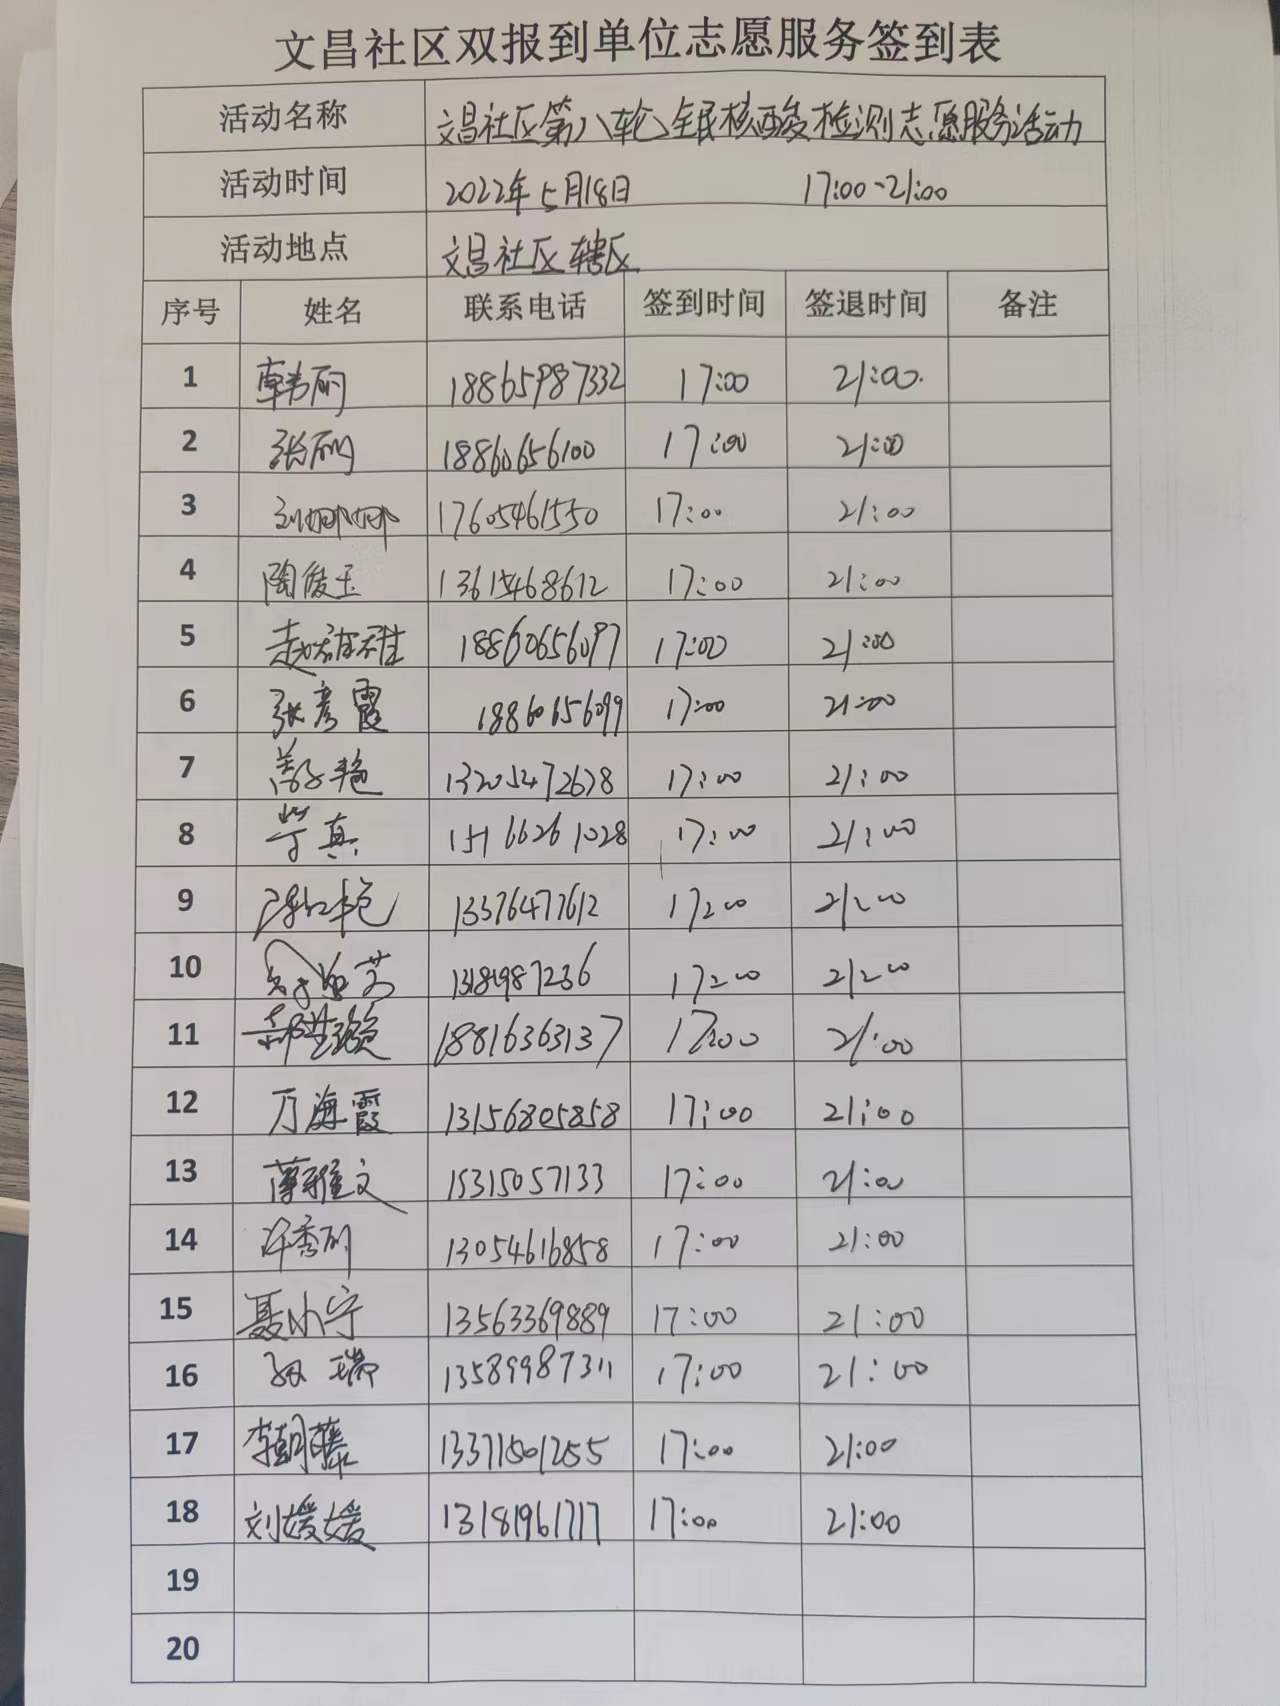 文昌社区双报到单位志愿服务签到表
活动名称 文昌社区第八轮全民核酸检测志愿服务活动
活动时间 2022年5月18日 17:00-21:00
活动地点 文昌社区辖区
序号 姓名 联系电话 签到时间 签退时间 备注
1 韩丽 18865987332 17:00 21:00
2 张丽 18860656100 17:00 21:00
3 刘娜娜 17605461550 17:00 21:00
4 陶俊玉 13615468612 17:00 21:00
5 18860656097 17:00 21:00
6 张彦霞 18860656099 17:00 21:00
7 13205472678 17:00 21:00
8 15166261028 17:00 21:00
9 13376477612 17:00 21:00
10 13181987236 17:00 21:00
11 18816363137 17:00 21:00
12 万海霞 13156805858 17:00 21:00
13 薄雅文 15315057133 17:00 21:00
14 许秀丽 13054616858 17:00 21:00
15 聂小宁 13563369889 17:00 21:00
16 孙瑞 13589987311 17:00 21:00
17 李朝藤 13371501255 17:00 21:00
18 刘媛媛 13181961717 17:00 21:00
19
20